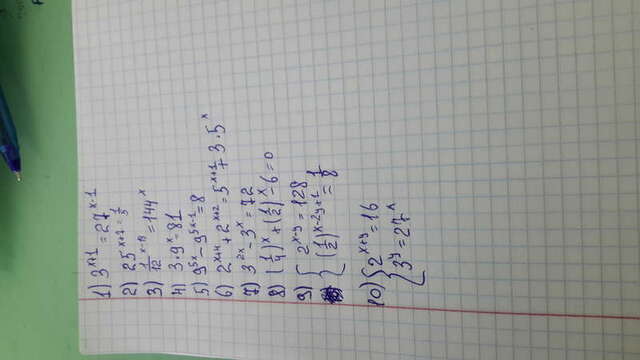 1) 3^{x+1} = 27^{x-1}
2) 25^{x+2} = 1/5
3) 1/12^{x-19} = 144^x
4) 3·9^x = 81
5) 9^{5x} - 9^{5x-1} = 8
6) 2^{x+4} + 2^{x+2} = 5^{x+1} + 3·5^x
7) 3^{2x} - 3^x = 72
8) (1/4)^x + (1/2)^x - 6 = 0
9) { 2^{x-y} = 128
(1/2)^{x-2y+1} = 1/8
10) { 2^{x+y} = 16
3^y = 27^x